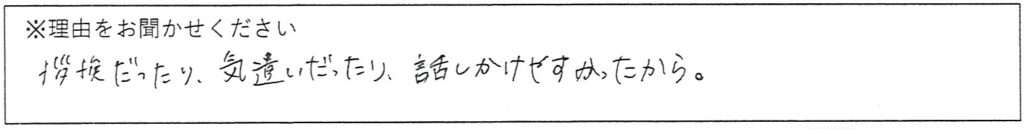 ※理由をお聞かせください
挨拶だったり、気遣いだったり、話しかけやすかったから。